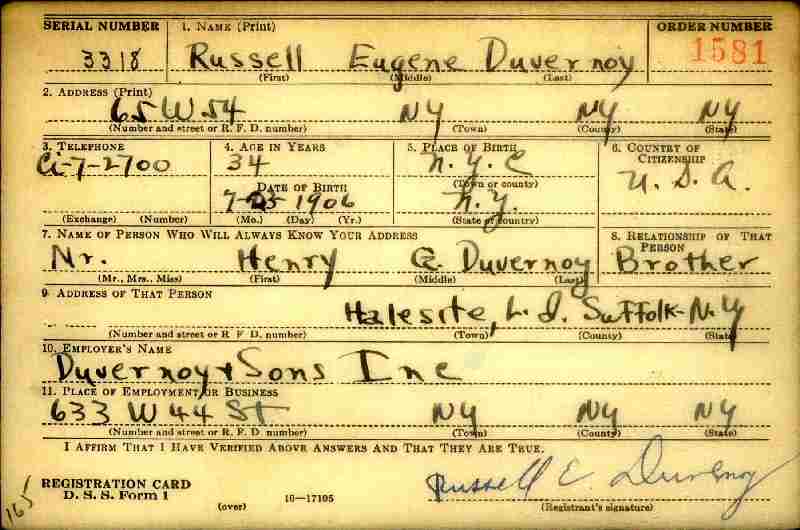 SERIAL NUMBER 1. NAME (Print) ORDER NUMBER
3318 Russell Eugene Duvernoy 1581
(First) (Middle) (Last)
2. ADDRESS (Print)
65 W 54 NY NY NY
(Number and street or R. F. D. number) (Town) (County) (State)
3. TELEPHONE 4. AGE IN YEARS 5. PLACE OF BIRTH 6. COUNTRY OF CITIZENSHIP
Ci-7-2700 34 N.Y.C U.S.A.
DATE OF BIRTH (Town or county)
7-23-1906 N.Y.
(Exchange) (Number) (Mo.) (Day) (Yr.) (State or country)
7. NAME OF PERSON WHO WILL ALWAYS KNOW YOUR ADDRESS 8. RELATIONSHIP OF THAT PERSON
Mr. Henry G. Duvernoy Brother
(Mr., Mrs., Miss) (First) (Middle) (Last)
9. ADDRESS OF THAT PERSON
Halesite, L.I. Suffolk-N.Y
(Number and street or R. F. D. number) (Town) (County) (State)
10. EMPLOYER'S NAME
Duvernoy + Sons Inc
11. PLACE OF EMPLOYMENT OR BUSINESS
633 W 44 St NY NY NY
(Number and street or R. F. D. number) (Town) (County) (State)
I AFFIRM THAT I HAVE VERIFIED ABOVE ANSWERS AND THAT THEY ARE TRUE.
REGISTRATION CARD Russell E. Duvernoy
D. S. S. Form 1 (over) 16—17105 (Registrant's signature)
165